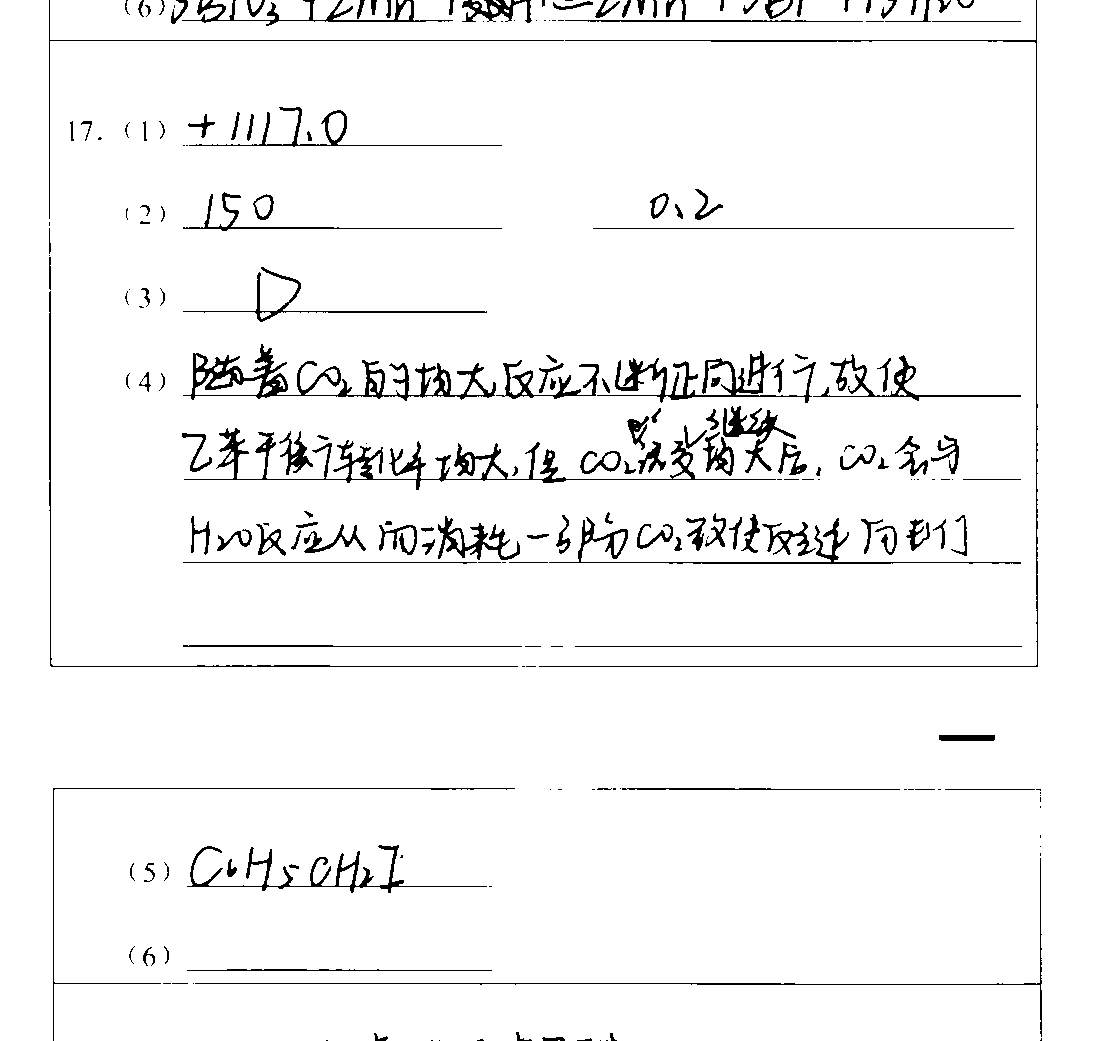 17. (1) +1117.0
(2) 150 0.2
(3) D
(4) 随着CO₂的增大反应不断正向进行,故使
乙苯平衡转化率增大,但CO₂浓度继续增大后,CO₂会与
H₂O反应从而消耗一部分CO₂致使反应逆向进行
(5) C₆H₅CH₂I
(6)